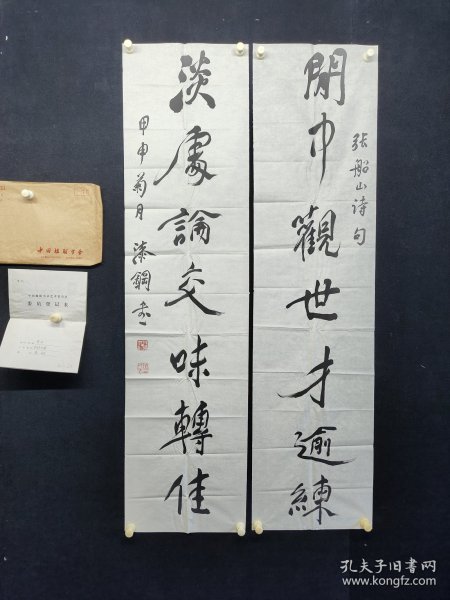 閒中觀世才逾練
張船山詩句
淡處論交味轉佳
甲申菊月
漆鋼書
中国楹联学会
委员登记表
孔夫子旧书网
www.kongfz.com